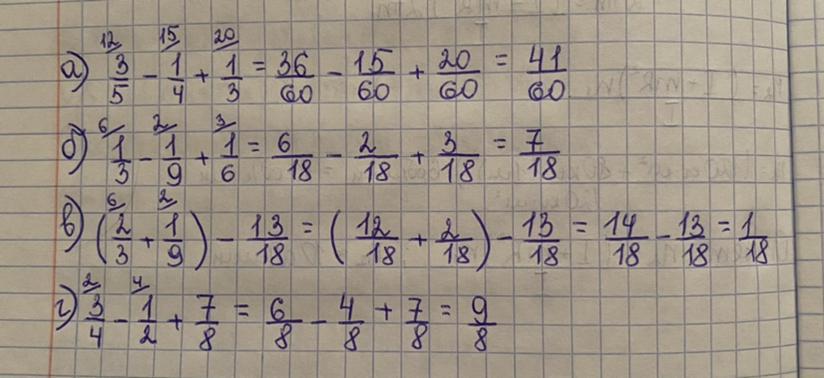 а) 12/ 3/5 - 15/ 1/4 + 20/ 1/3 = 36/60 - 15/60 + 20/60 = 41/60
б) 6/ 1/3 - 2/ 1/9 + 3/ 1/6 = 6/18 - 2/18 + 3/18 = 7/18
в) (6/ 2/3 + 2/ 1/9) - 13/18 = (12/18 + 2/18) - 13/18 = 14/18 - 13/18 = 1/18
г) 2/ 3/4 - 4/ 1/2 + 7/8 = 6/8 - 4/8 + 7/8 = 9/8